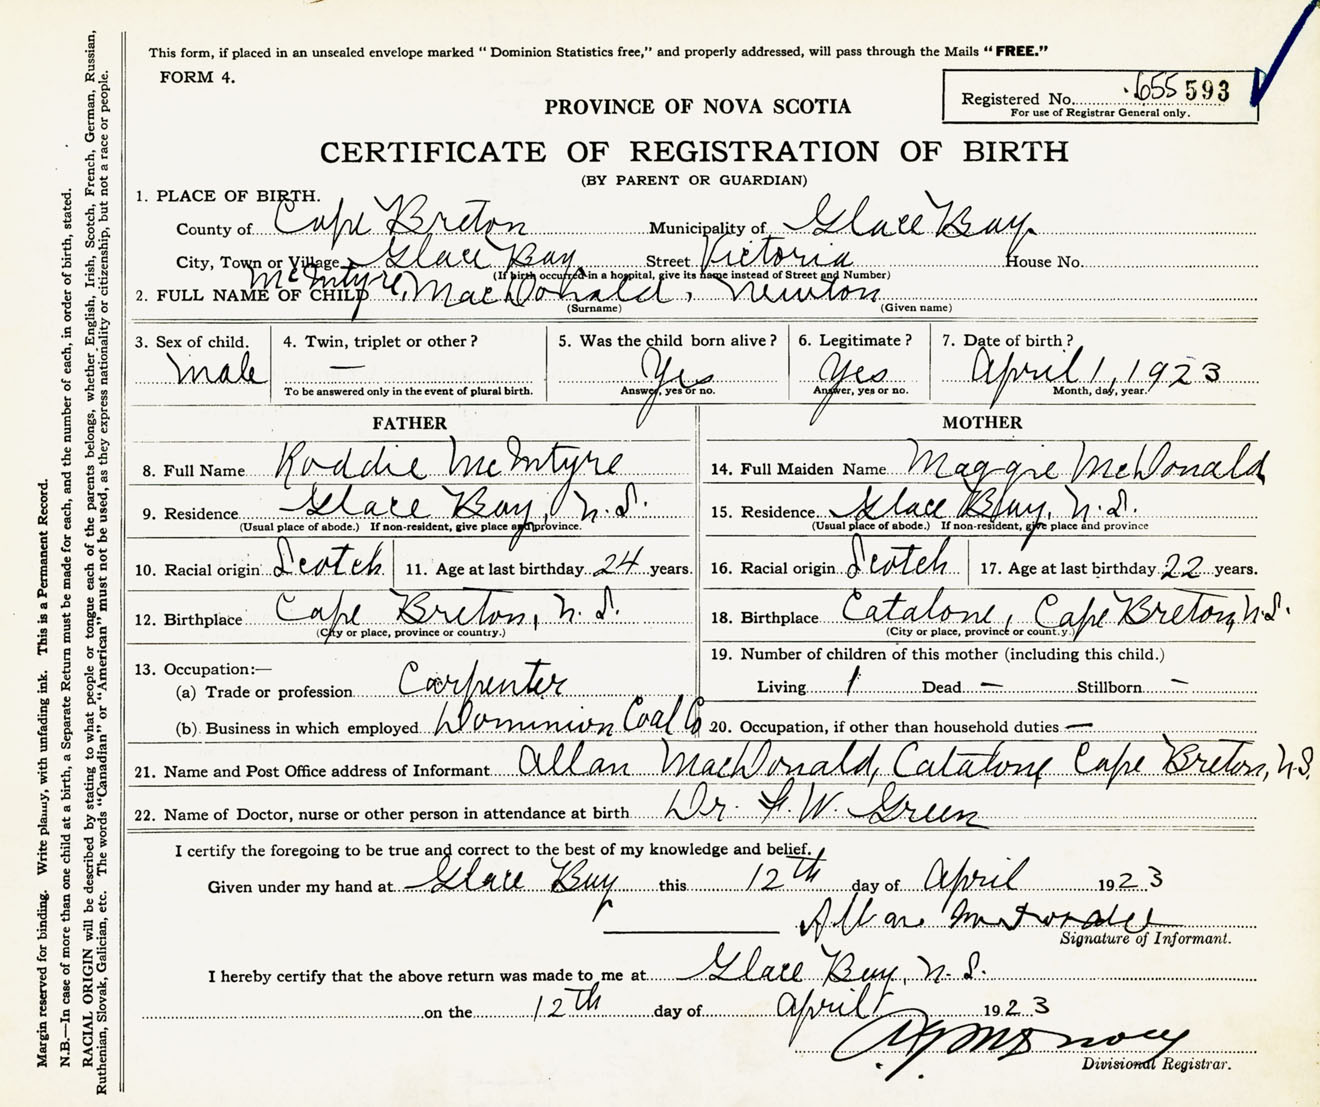 This form, if placed in an unsealed envelope marked “ Dominion Statistics free,” and properly addressed, will pass through the Mails “ FREE.”
FORM 4.
Registered No. 655 593
For use of Registrar General only.
PROVINCE OF NOVA SCOTIA
CERTIFICATE OF REGISTRATION OF BIRTH
(BY PARENT OR GUARDIAN)
1. PLACE OF BIRTH.
County of Cape Breton Municipality of Glace Bay
City, Town or Village Glace Bay Street Victoria House No.
(If birth occurred in a hospital, give its name instead of Street and Number)
2. FULL NAME OF CHILD McIntyre, MacDonald, Newton
(Surname) (Given name)
3. Sex of child. 4. Twin, triplet or other ? 5. Was the child born alive ? 6. Legitimate ? 7. Date of birth ?
Male — Yes Yes April 1, 1923
To be answered only in the event of plural birth. Answer, yes or no. Answer, yes or no. Month, day, year.
FATHER MOTHER
8. Full Name Roddie McIntyre 14. Full Maiden Name Maggie McDonald
9. Residence Glace Bay, N.S. 15. Residence Glace Bay, N.S.
(Usual place of abode.) If non-resident, give place and province. (Usual place of abode.) If non-resident, give place and province
10. Racial origin Scotch 11. Age at last birthday 24 years. 16. Racial origin Scotch 17. Age at last birthday 22 years.
12. Birthplace Cape Breton, N.S. 18. Birthplace Catalone, Cape Breton, N.S.
(City or place, province or country.) (City or place, province or count.y.)
13. Occupation:— 19. Number of children of this mother (including this child.)
(a) Trade or profession Carpenter Living 1 Dead — Stillborn —
(b) Business in which employed Dominion Coal Co 20. Occupation, if other than household duties —
21. Name and Post Office address of Informant Allan MacDonald, Catalone Cape Breton, N.S.
22. Name of Doctor, nurse or other person in attendance at birth Dr. F. W. Green
I certify the foregoing to be true and correct to the best of my knowledge and belief.
Given under my hand at Glace Bay this 12th day of April 1923
Allan
Signature of Informant.
I hereby certify that the above return was made to me at Glace Bay, N.S.
on the 12th day of April 1923
Divisional Registrar.
Margin reserved for binding. Write plainly, with unfading ink. This is a Permanent Record.
N.B.—In case of more than one child at a birth, a Separate Return must be made for each, and the number of each, in order of birth, stated.
RACIAL ORIGIN will be described by stating to what people or tongue each of the parents belongs, whether English, Irish, Scotch, French, German, Russian,
Ruthenian, Slovak, Galician, etc. The words “Canadian” or “American” must not be used, as they express nationality or citizenship, but not a race or people.